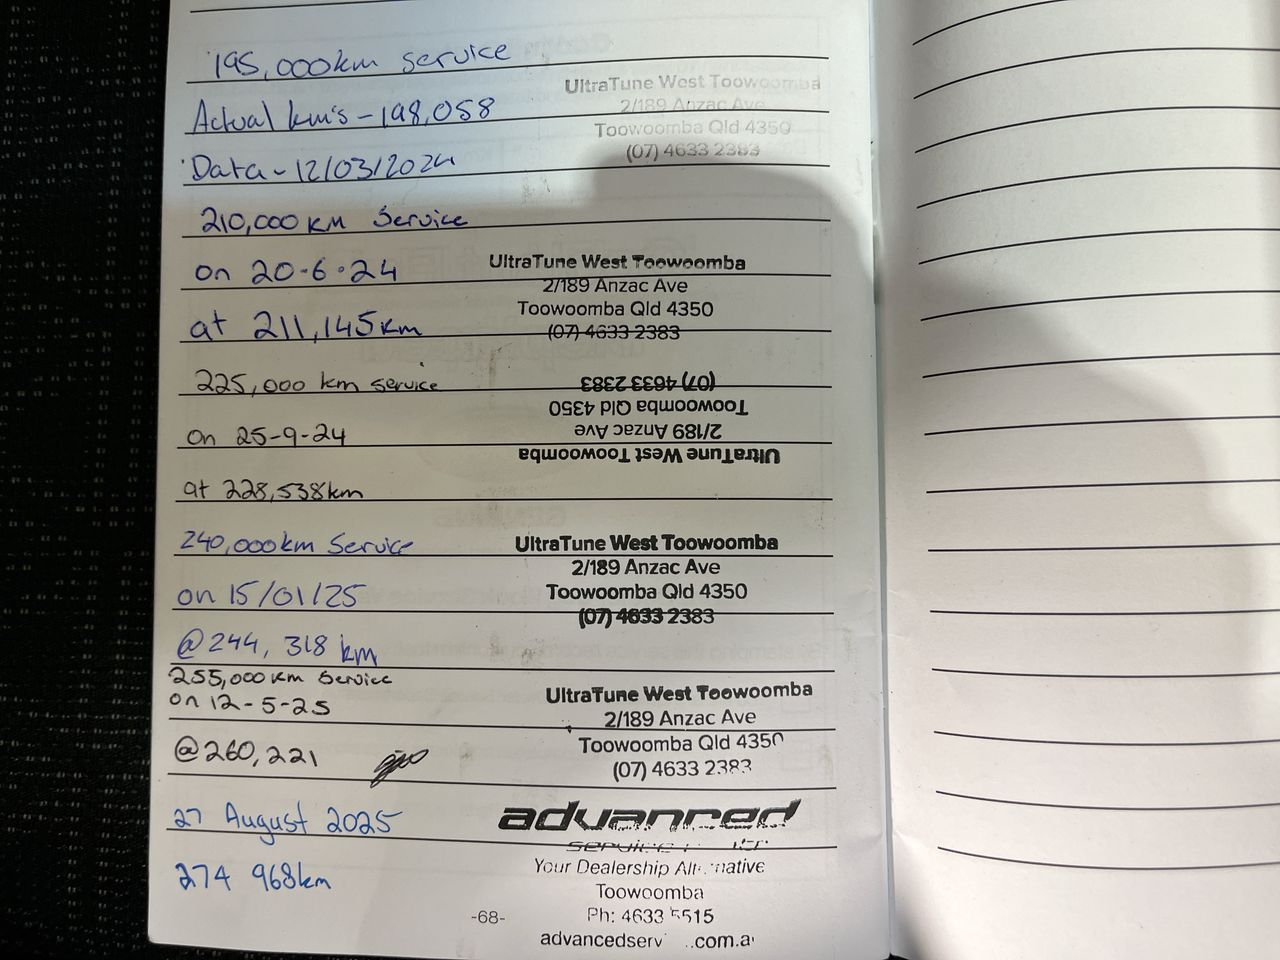 195,000km service
UltraTune West Toowoomba
2/189 Anzac Ave
Actual km's - 198,058
Toowoomba Qld 4350
(07) 4633 2383
Data - 12/03/2024
210,000 KM Service
UltraTune West Toowoomba
on 20-6-24
2/189 Anzac Ave
Toowoomba Qld 4350
at 211,145km
(07) 4633 2383
225,000 km service
(07) 4633 2383
Toowoomba Qld 4350
on 25-9-24
2/189 Anzac Ave
UltraTune West Toowoomba
at 228,538km
240,000km Service
UltraTune West Toowoomba
2/189 Anzac Ave
on 15/01/25
Toowoomba Qld 4350
(07) 4633 2383
@ 244, 318 km
255,000 km Service
UltraTune West Toowoomba
on 12-5-25
2/189 Anzac Ave
@ 260,221
Toowoomba Qld 4350
(07) 4633 2383
27 August 2025
advanced
Your Dealership Alternative
274 968km
Toowoomba
-68-
Ph: 4633 5515